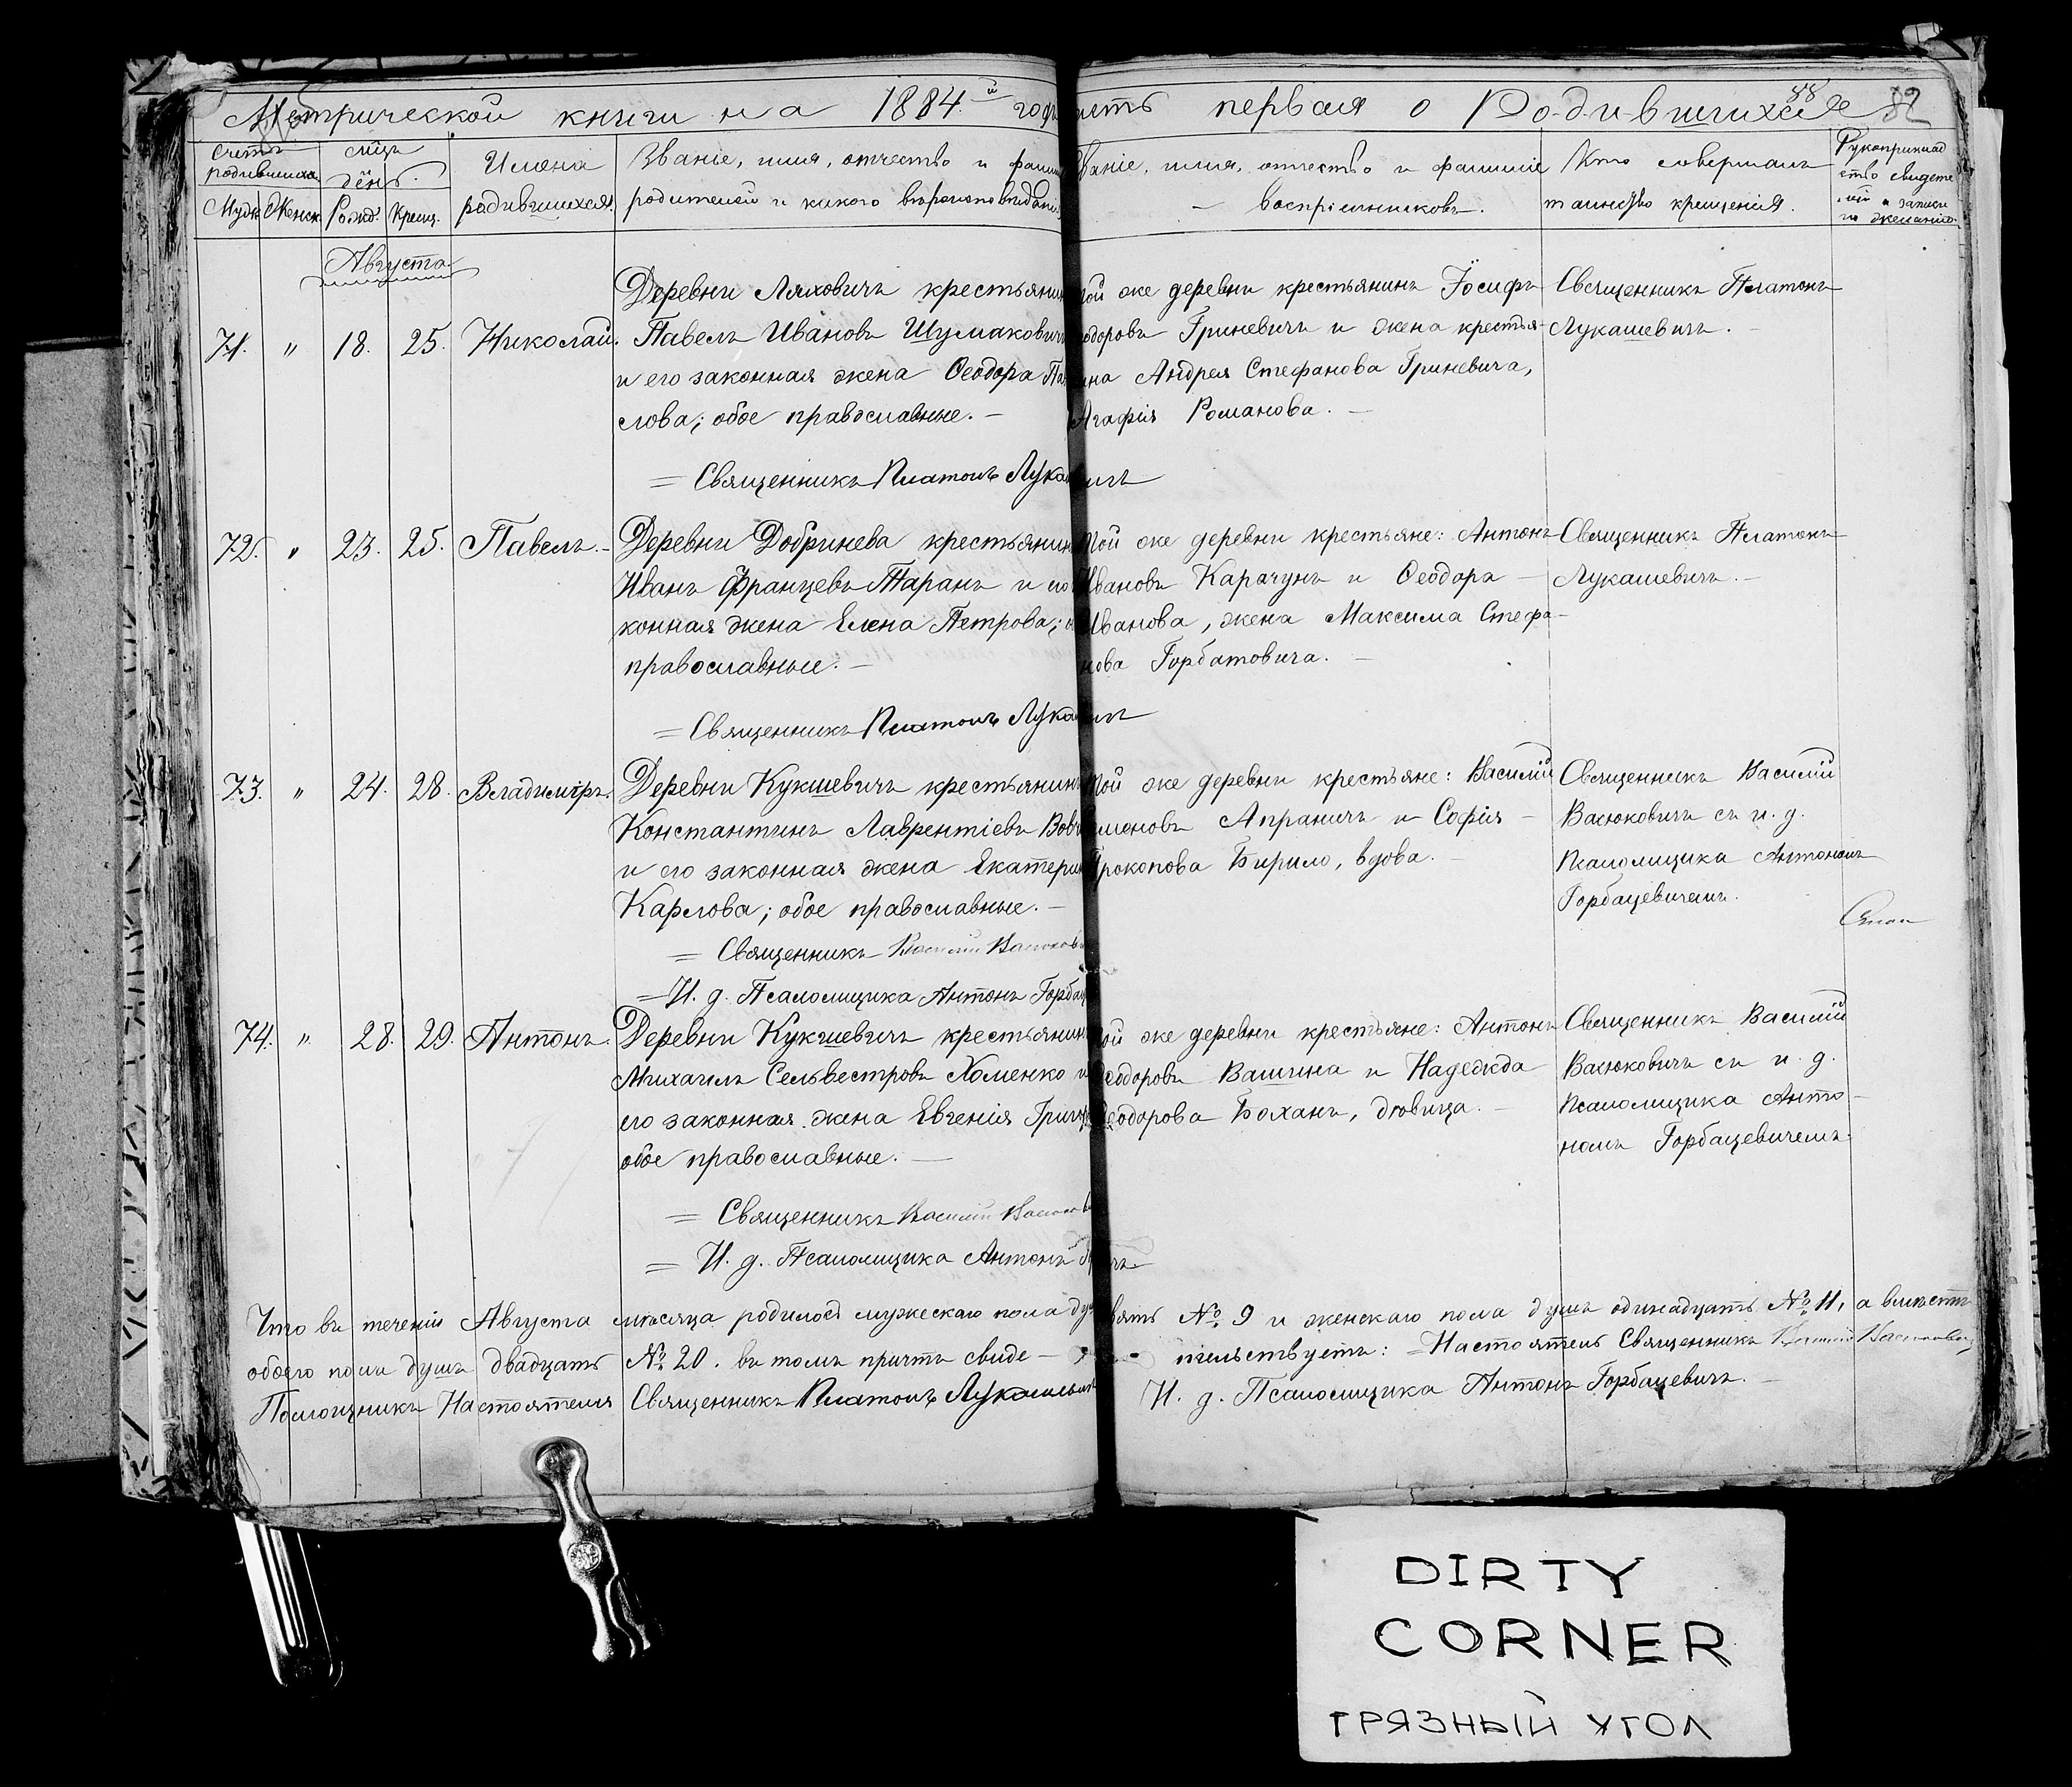 Метрической книги на 1884.й годъ
Счетъ родившихся.
Муж. Женск.
день.
Рожд. Крещ.
Имена родившихся.
Званіе, имя, отчество и фамилі
родителей и какого вѣроисповѣданія
Августа
71. " 18. 25. Николай.
Деревни Ляховичъ крестьянин
Павелъ Ивановъ Шумаковичъ
и его законная жена Ѳеодора Па
слова; обое православные. —
= Священникъ Платонъ Лука
72. " 23. 25. Павелъ. –
Деревни Добринева крестьянин
Иванъ Францевъ Таранъ и
конная жена Елена Петрова;
православные. —
= Священникъ Платонъ Лука
73. " 24. 28. Владиміръ.
Деревни Кукшевичъ крестьянинъ
Константинъ Лаврентіевъ
и его законная жена Екатери
Карлова; обое православные. —
= Священникъ Василій Васюкови
= И. д. Псаломщика Антонъ Горбац
74. " 28. 29. Антонъ.
Деревни Кукшевичъ крестьянин
Михаилъ Сельвестровъ Хоменко и
его законная жена Евгенія
обое православные. —
= Священникъ Василій Васюков
= И. д. Псаломщика Антонъ
Что въ теченіи Августа мѣсяца родилось мужескаго пола ду
обоего пола душъ двадцать № 20. въ томъ причтъ свиде –
Помощникъ Настоятеля Священникъ Платонъ Лукашевич
первая о Родившихся
88 82
Званіе, имя, отчество и фамиліе
– воспріемниковъ.
Кто совершалъ
таинство крещенія.
Рукоприклад
ство свидете
лей о записи
по желанію.
той же деревни крестьянинъ Іосифъ
Ѳеодоровъ Гриневичъ и жена крестья–
нина Андрея Стефанова Гриневича,
Агафія Романова. —
Священникъ Платонъ
Лукашевичъ. –
вичъ
той же деревни крестьяне: Антонъ
Ивановъ Карачунъ и Ѳеодора –
Иванова, жена Максима Стефа–
нова Горбатовича. –
Священникъ Платонъ
Лукашевичъ. –
вичъ
той же деревни крестьяне: Василій
Апраничъ и Софія –
Прокопова Бирило, вдова. –
Священникъ Василій
Васюковичъ съ и. д.
Псаломщика Антономъ
Горбацевичемъ.
той же деревни крестьяне: Антонъ
Ѳеодоровъ Вашина и Надежда
Ѳеодорова Боханъ, дѣвица. –
Священникъ Василій
Васюковичъ съ и. д.
Псаломщика Анто–
номъ Горбацевичемъ.
вять № 9 и женскаго пола душъ одинадцать № 11, а вместѣ
тельствуетъ: = Настоятель Священникъ Василій Васюкович
И. д. Псаломщика Антонъ Горбацевичъ. –
DIRTY
CORNER
ГРЯЗНЫЙ УГОЛ